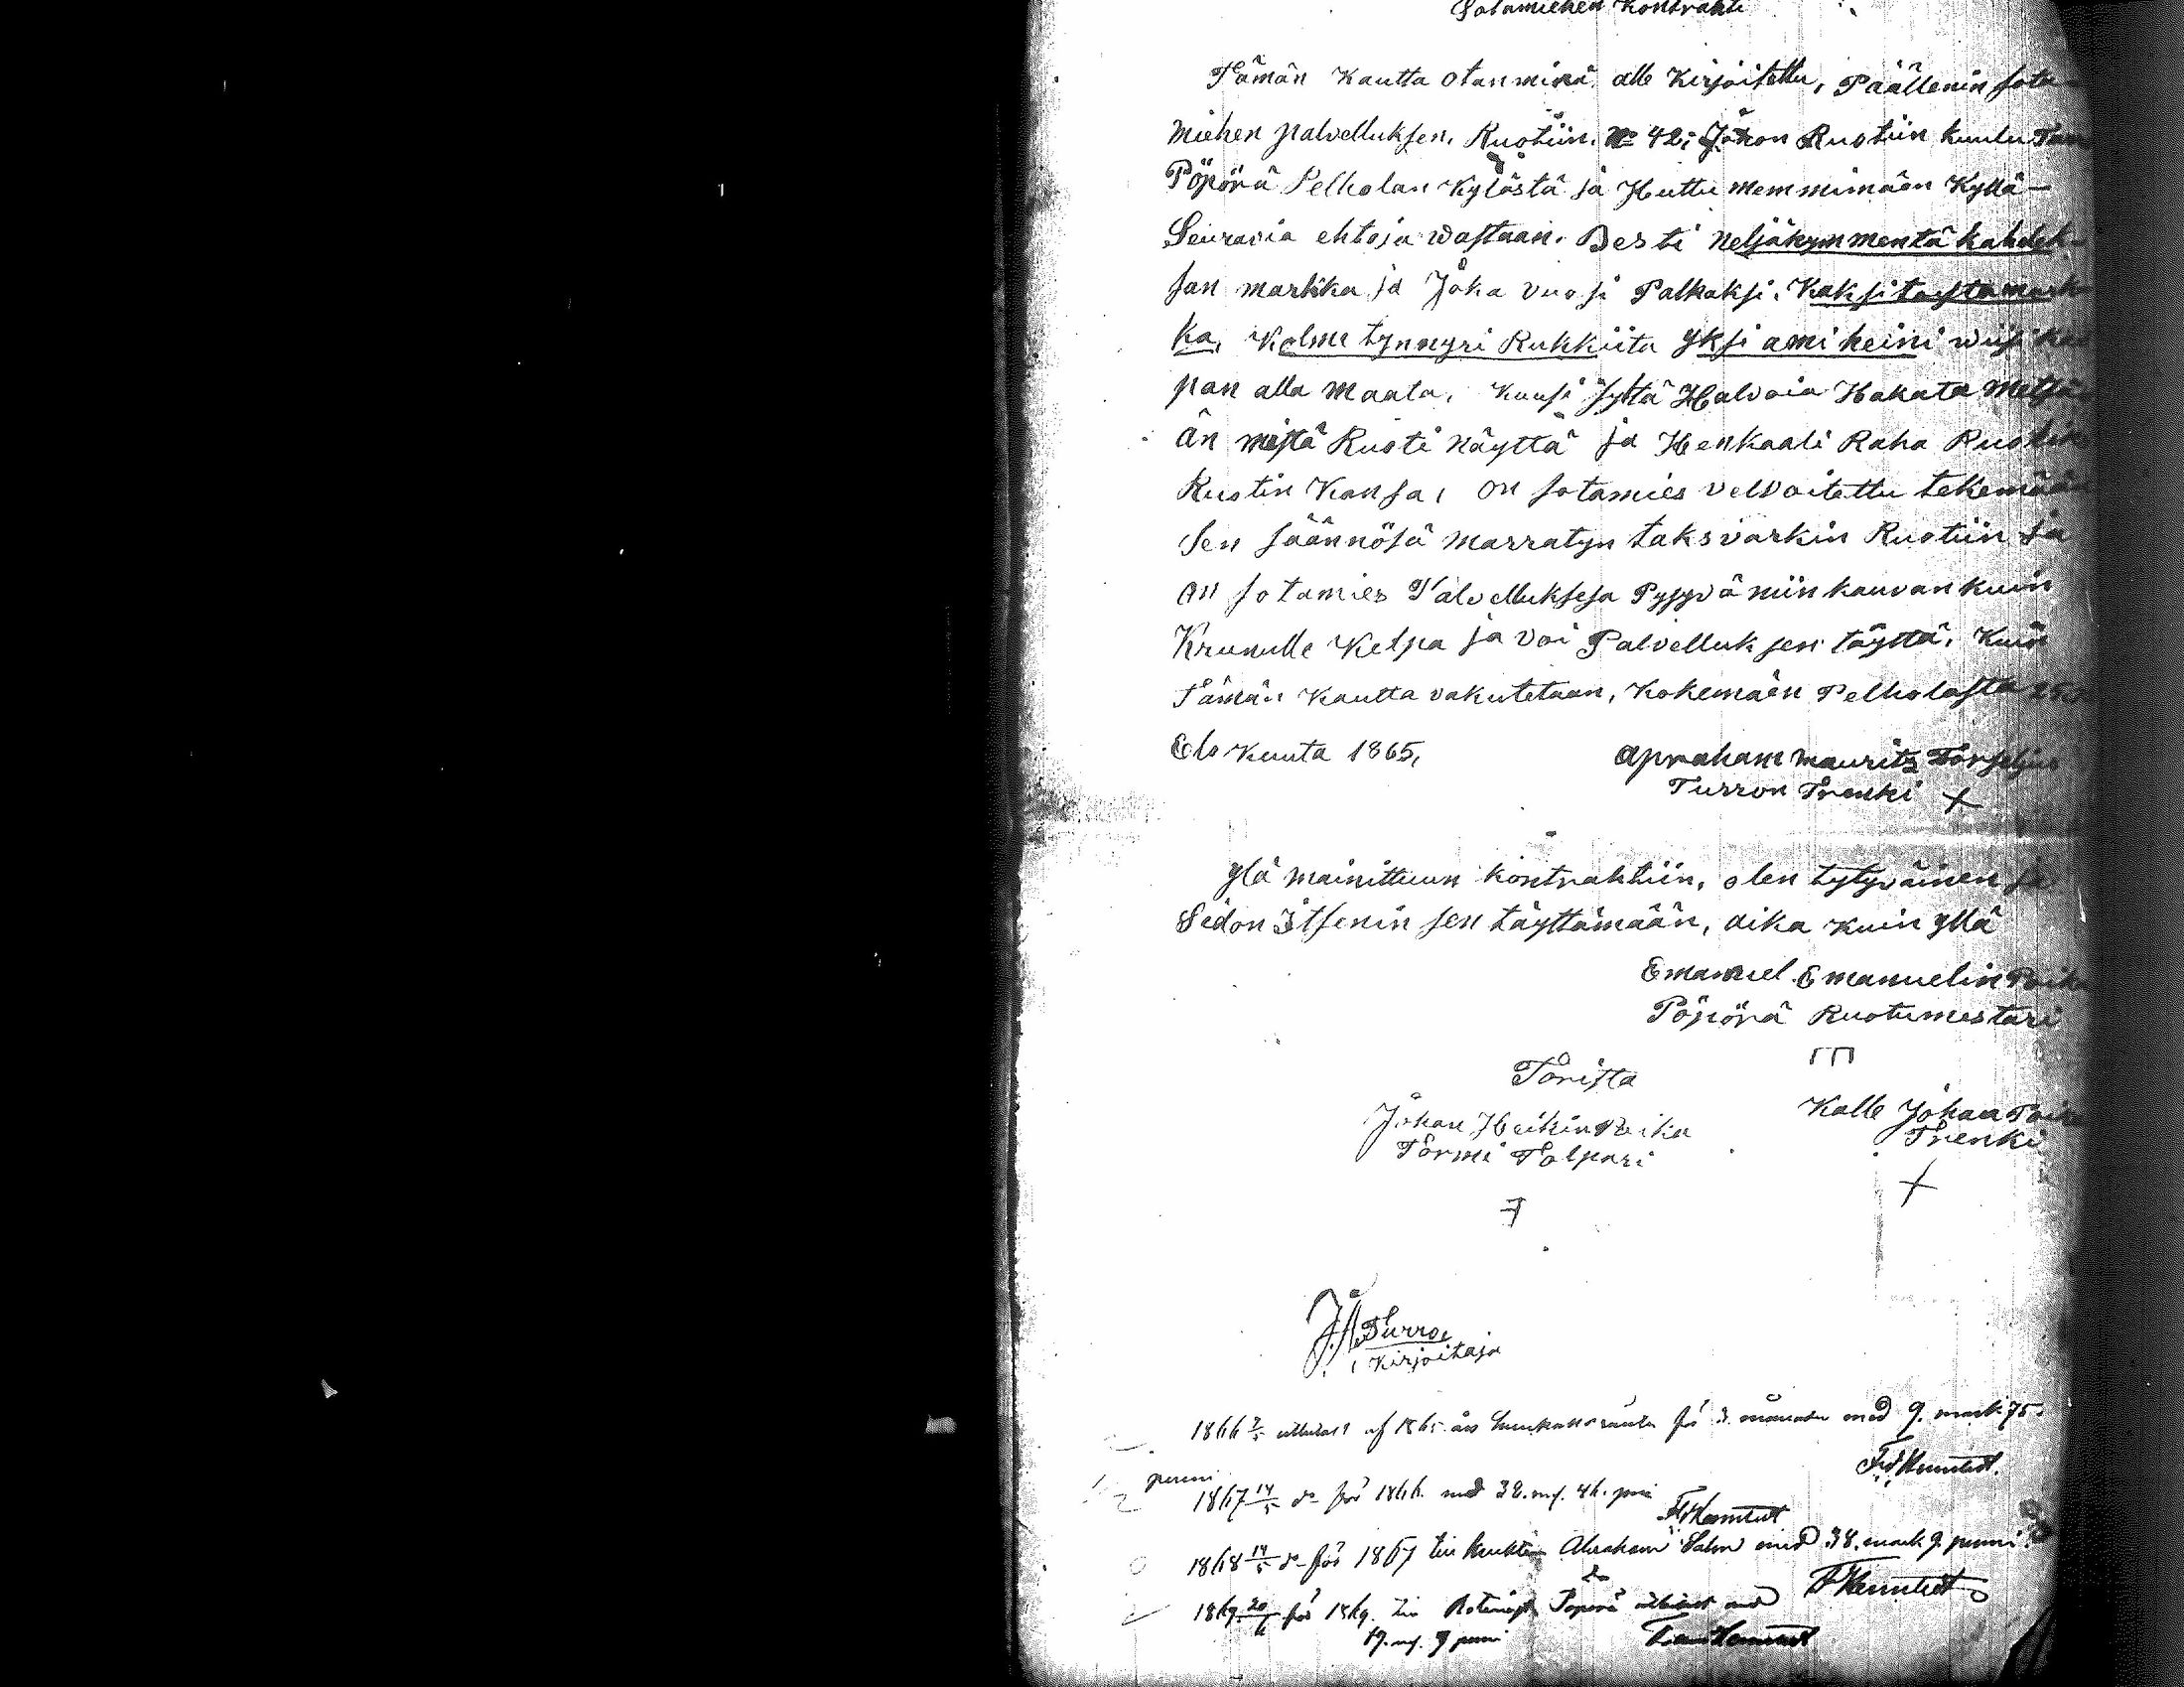 Sotamiehen Kontrahti
Tämän Kautta otan minä alle Kirjoitettu, Päällenin sota-
miehen palvelluksen, Ruotiin, No 42; Johon Ruotiin kuulu
Pöpörä Pelholan Kylästä ja Huttu memmimäen Kyllä-
Seuravia ehtoja wastaan. Besti neljäkymmentä kahdek-
san markka ja Joka vuosi Palkaksi, Kaksitoista mark-
ka, Kolme tynnyri Rukkiita yksi ami heini wiisi
pan alla maata, Kuusi syltä Halvoia Hakata metsä-
än mistä Ruoti näyttä ja Henkaali Raha Ruotin
Ruotin Kansa, on sotamies velvoitettu tekemään
sen säännösä marratyn taksvärkin Ruotiin ja
on sotamies Palvelluksesa Pysyvä niin kauvan kuin
Krunulle Kelpa ja voi Palvelluksen täyttä, Kuin
Tämän Kautta vakutetaan, Kokemäen Pelholasta
Elo Kuuta 1865,
Apraham Mauritz
Turron Trenki +
ylä mainittuun kontrahtiin, olen tytyväinen ja
Sidon Itsenin sen täyttämään, aika kuin yllä
Emanuel Emanuelin Poika
Pöpörä Ruotumestari
Torista
Johan Heikin Poika
Tormi Tolpari
Kalle Johan Poika
Trenki
+
J. Turro,
Kirjoitaja
1866 af 1865 års för 3. månader med 9. mark 75.
penni
1867 14/5 för 1866. med 38. mf. penni
1868 14/5 för 1867 Abraham med 38. mark 9 penni
för Pöpörä med
19. mf. 9 penni